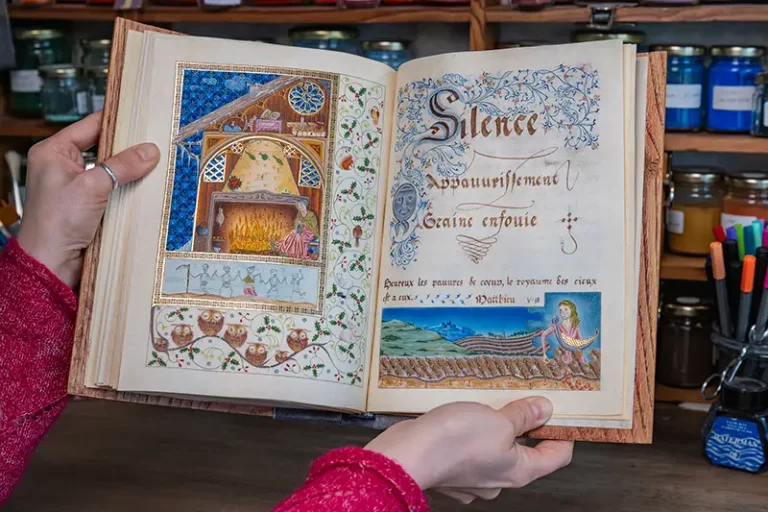 Silence
Appauvrissement
Graine enfouie
Heureux les pauvres de coeur, le royaume des cieux
est a eux. Matthieu
WATERMAN